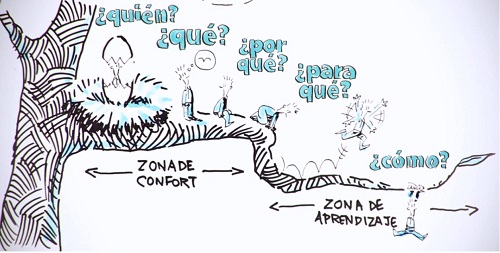 ¿quién?
¿qué?
¿por
qué?
¿para
qué?
¿cómo?
ZONA DE
CONFORT
ZONA DE
APRENDIZAJE